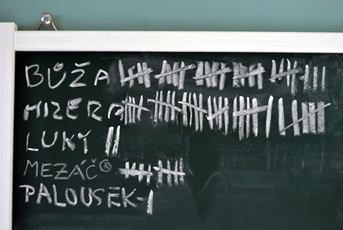 BŮŽA
MIZERA
LUKY ||
MEZÁČ®
PALOUSEK-|